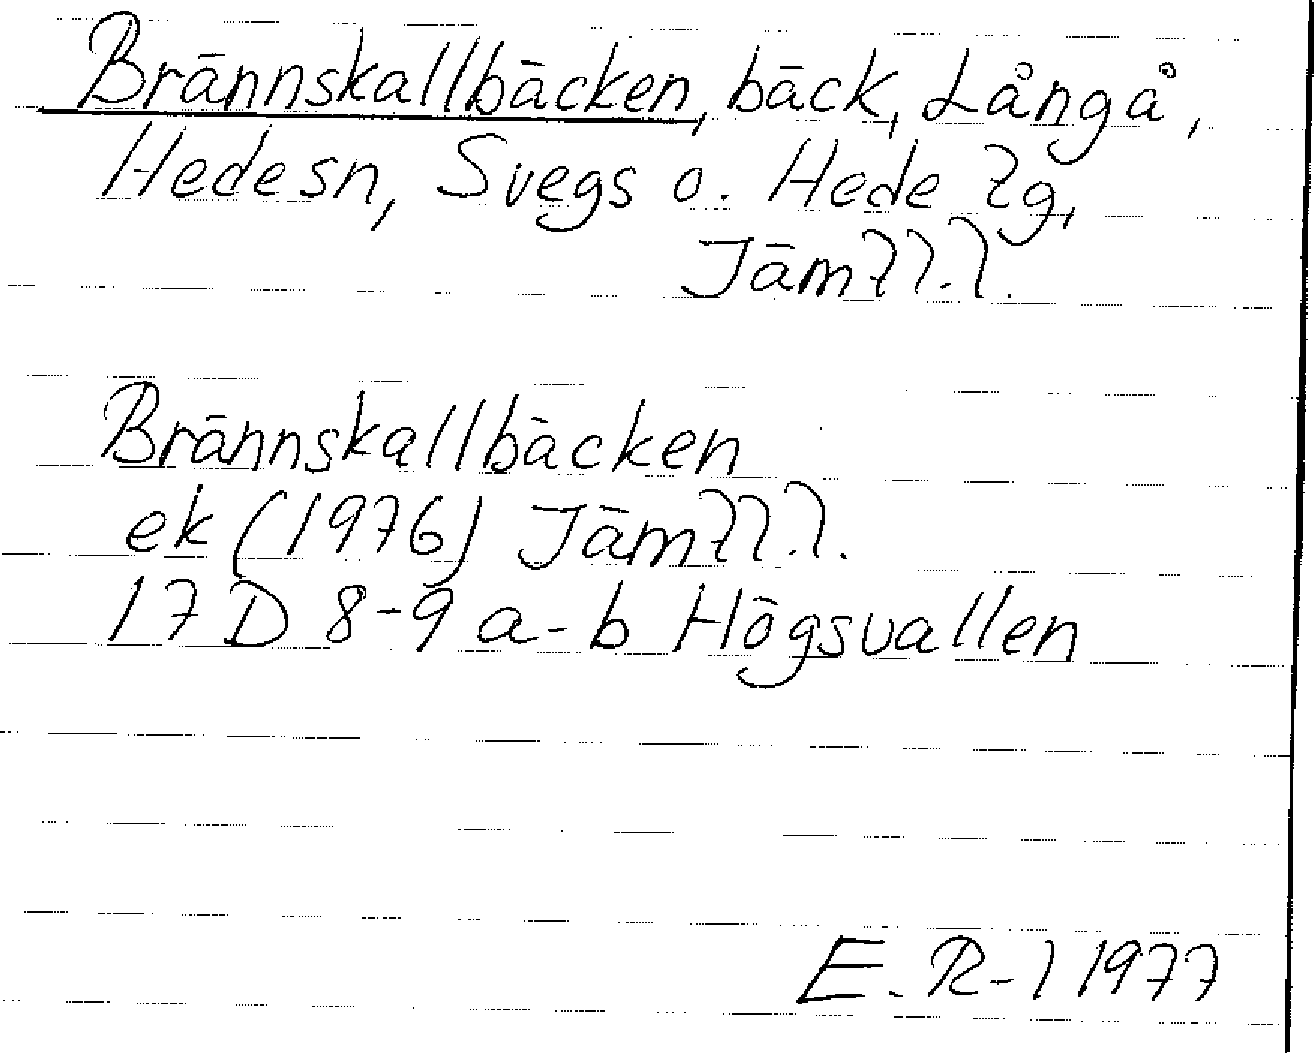 Brännskallbäcken, bäck, Långå,
Hedesn, Svegs o. Hede tg,
Jämtl.l.
Brännskallbäcken
ek (1976) Jämtl.l.
17 D 8-9 a-b Högsvallen
E. R-l 1977